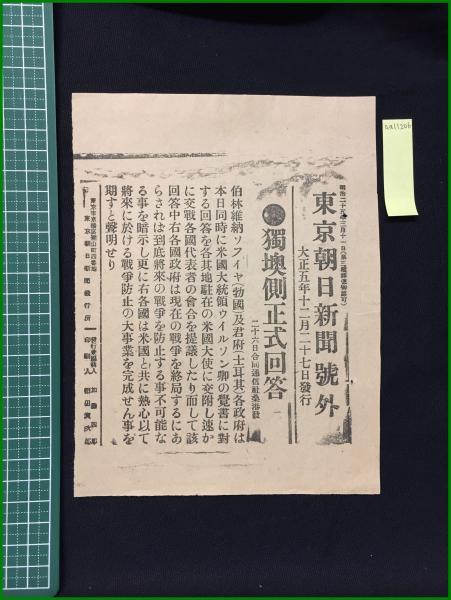 東京朝日新聞號外
大正五年十二月二十七日發行
獨墺側正式回答
二十六日合同通信社桑港發
伯林維納ソフイヤ(勃國)及君府(土耳其)各政府は
本日同時に米國大統領ウイルソン卿の覺書に對
する回答を各其地駐在の米國大使に交附し速か
に交戰各國代表者の會合を提議したり而して該
回答中右各國政府は現在の戰爭を終局するにあ
らされは到底將來の戰爭を防止する事不可能な
る事を暗示し更に右各國は米國と共に熱心以て
將來に於ける戰爭防止の大事業を完成せん事を
期すと聲明せり
東京朝日新聞發行所
aa11206